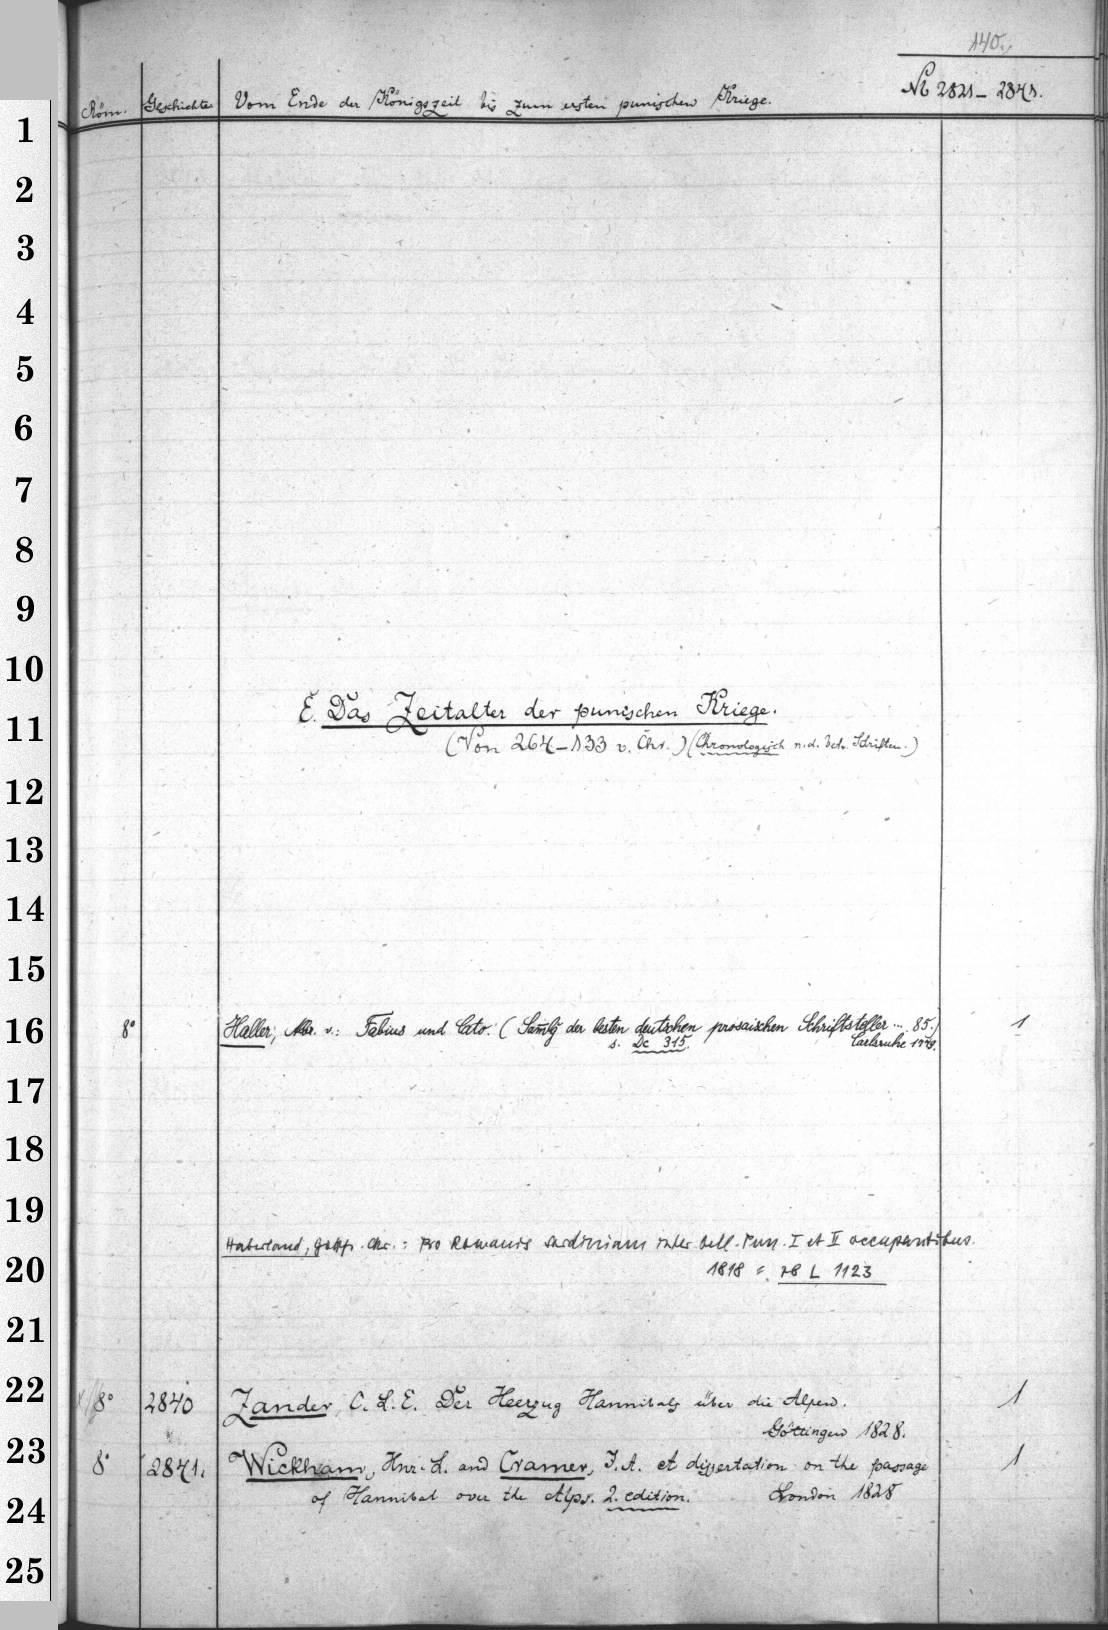 140.
Röm. Geschichte Vom Ende der Königszeit bis zum ersten punischen Kriege. № 2821 – 2841.
1
2
3
4
5
6
7
8
9
10
E. Das Zeitalter der punischen Kriege.
11
(Von 264–133 v. Chr.) (Chronologisch n. d. betr. Schriften.)
12
13
14
15
16 8° Haller, Abr. v.: Fabius und Cato. (Samlg der besten deutschen prosaischen Schriftsteller ... 85.) 1
s. Dc 315. Carlsruhe 1779.
17
18
19
Haberland, Chr.: Pro Romanis Sardiniam inter bell. Pun. I et II occupantibus.
20 1818 = L 1123
21
22 8° 2840 Zander, C. L. E. Der Heerzug Hannibals über die Alpen. 1
Göttingen 1828.
23 8° 2841. Wickham, Hnr. L. and Cramer, J. A. A dissertation on the passage 1
24 of Hannibal over the Alps. 2. edition. London 1828
25